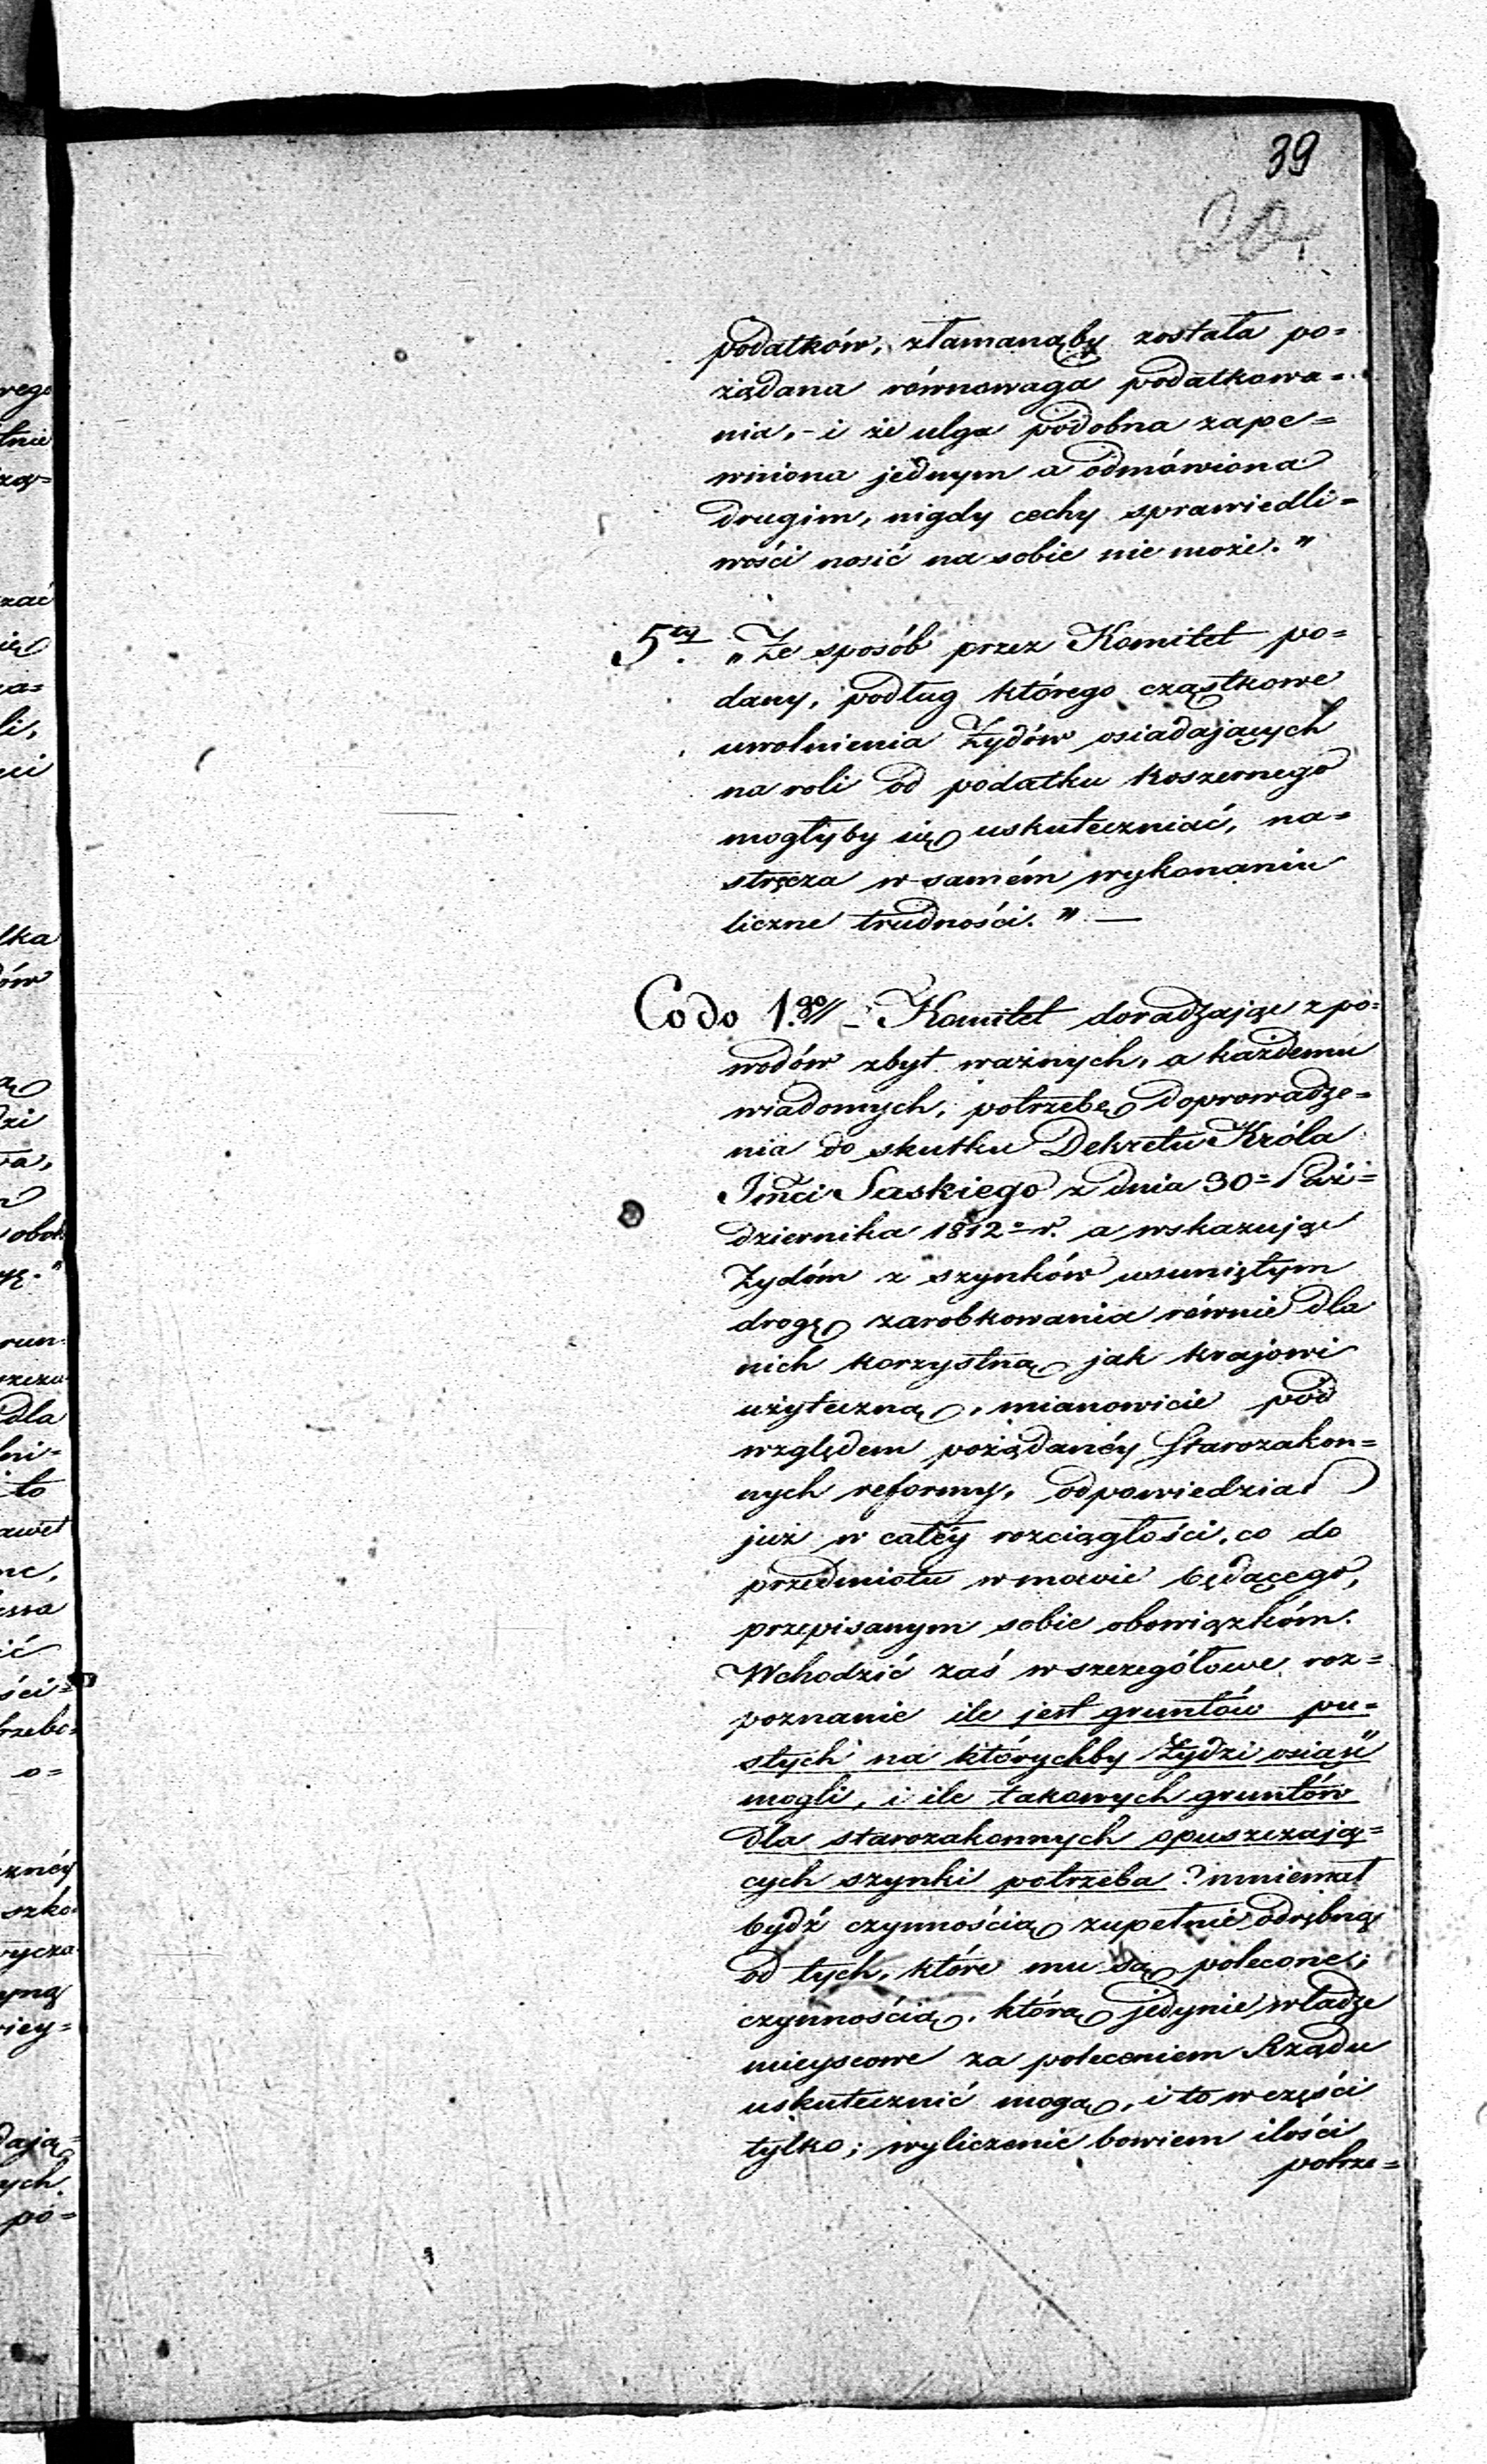 39
20
podatków, złamanąby została po=
żądana równowaga podatkowa=
nia, - i że ulga podobna zape=
wniona jednym a odmówiona
drugim, nigdy cechy sprawiedli=
wości nosić na sobie nie może."
5ty. "Że sposób przez Komitet po=
dany, podług którego cząstkowe
uwolnienia Żydów osiadających
na roli od podatku koszernego
mogłyby się uskuteczniać, na=
stręcza w samém wykonaniu
liczne trudności." —
Co do 1.go// - Komitet doradzając z po=
wodów zbyt ważnych, a każdemu
wiadomych, potrzebę doprowadze=
nia do skutku Dekretu Króla
Jmci Saskiego z dnia 30= Paź=
dziernika 1812= r. a wskazując
Żydóm z szynków usuniętym
drogę zarobkowania równie dla
nich korzystną jak krajowi
użyteczną, mianowicie pod
względem pożądanéy Starozakon=
nych reformy, odpowiedział
już w całéy rozciągłości, co do
przedmiotu w mowie będącego,
przepisanym sobie obowiązkóm.
Wchodzić zaś w szczegółowe roz=
poznanie ile jest gruntów pu=
stych na którychby Żydzi osiąść
mogli, i ile takowych gruntów
dla starozakonnych opuszczają=
cych szynki potrzeba? mniemał
bydź czynnością zupełnie odrębną
od tych, które mu są polecone;
czynnością, którą jedynie władze
mieyscowe za poleceniem Rządu
uskutecznić mogą, i to w części
tylko; wyliczenie bowiem ilości
potrze=